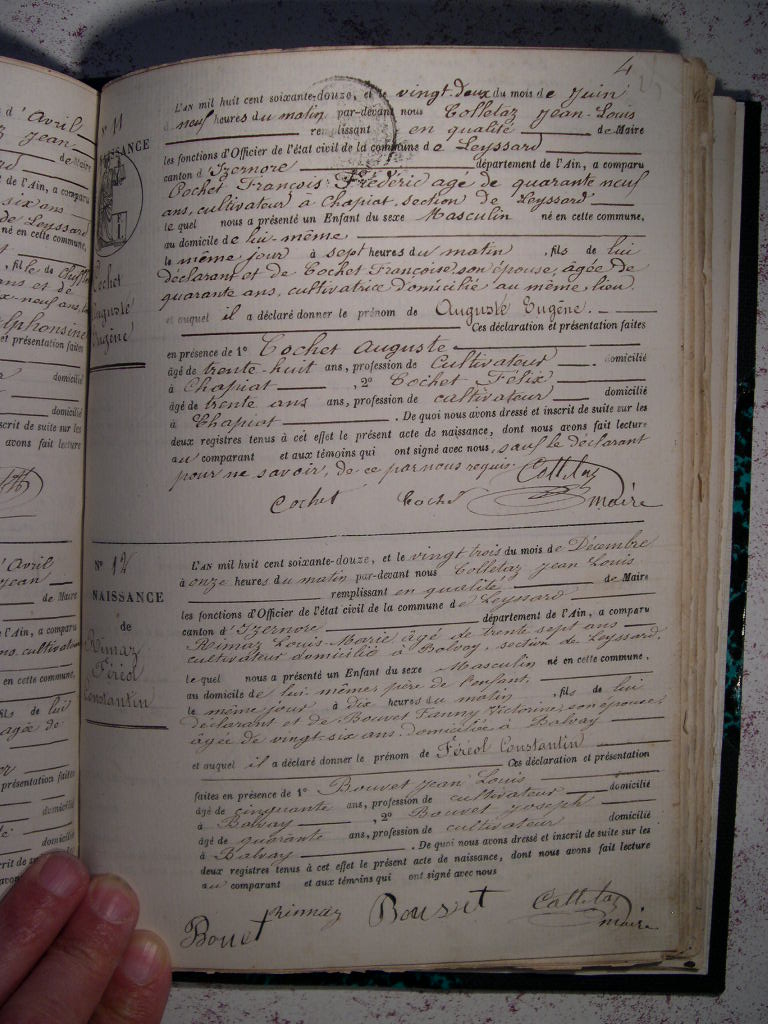 4
N° 11
NAISSANCE
Cochet
Auguste
Eugène
L'AN mil huit cent soixante-douze, et le vingt-deux du mois de Juin
à neuf heures du matin par-devant nous Colletaz Jean-Louis
remplissant en qualité de Maire
les fonctions d'Officier de l'état civil de la commune de Leyssard
canton d'Izernore département de l'Ain, a comparu
Cochet François-Frédéric agé de quarante neuf
ans, cultivateur à Chapiat, section de Leyssard
le quel nous a présenté un Enfant du sexe Masculin né en cette commune,
au domicile de lui-même
le même jour à sept heures du matin, fils de lui
déclarant et de Cochet Françoise, son épouse, âgée de
quarante ans, cultivatrice domicilié au même lieu,
et auquel il a déclaré donner le prénom de Auguste Eugène.
Ces déclaration et présentation faites
en présence de 1° Cochet Auguste
âgé de trente-huit ans, profession de Cultivateur domicilié
à Chapiat, 2° Cochet Félix
âgé de trente ans ans, profession de cultivateur domicilié
à Chapiat. De quoi nous avons dressé et inscrit de suite sur les
deux registres tenus à cet effet le présent acte de naissance, dont nous avons fait lecture
au comparant et aux témoins qui ont signé avec nous, sauf le déclarant
pour ne savoir, de ce par nous requis.
Cochet Cochet Colletaz
maire
N° 12
NAISSANCE
de
Rimaz
Féréol
Constantin
L'AN mil huit cent soixante-douze, et le vingt trois du mois de Décembre
à onze heures du matin par-devant nous Colletaz Jean Louis
remplissant en qualité de Maire
les fonctions d'Officier de l'état civil de la commune de Leyssard
canton d'Izernore département de l'Ain, a comparu
Rimaz Louis-Marie âgé de trente sept ans
cultivateur domicilié à Balvay, section de Leyssard,
le quel nous a présenté un Enfant du sexe Masculin né en cette commune,
au domicile de lui même, père de l'enfant,
le même jour à dix heures du matin, fils de lui
déclarant et de Bouvet Fanny Victorine, son épouse,
âgée de vingt-six ans domiciliée à Balvay
et auquel il a déclaré donner le prénom de Féréol Constantin
Ces déclaration et présentation
faites en présence de 1° Bouvet Jean Louis
âgé de cinquante ans, profession de cultivateur domicilié
à Balvay, 2° Bouvet Joseph
âgé de quarante ans, profession de cultivateur domicilié
à Balvay. De quoi nous avons dressé et inscrit de suite sur les
deux registres tenus à cet effet le présent acte de naissance, dont nous avons fait lecture
au comparant et aux témoins qui ont signé avec nous
Bouvet Rimaz Bouvet Colletaz
maire